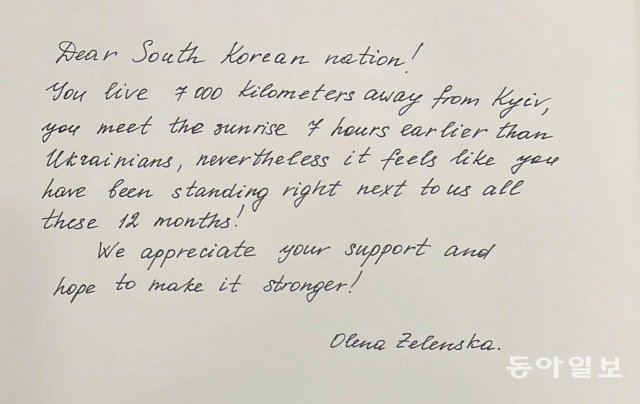 Dear South Korean nation!
You live 7 000 kilometers away from Kyiv,
you meet the sunrise 7 hours earlier than
Ukrainians, nevertheless it feels like you
have been standing right next to us all
these 12 months!
We appreciate your support and
hope to make it stronger!
Olena Zelenska.
동아일보